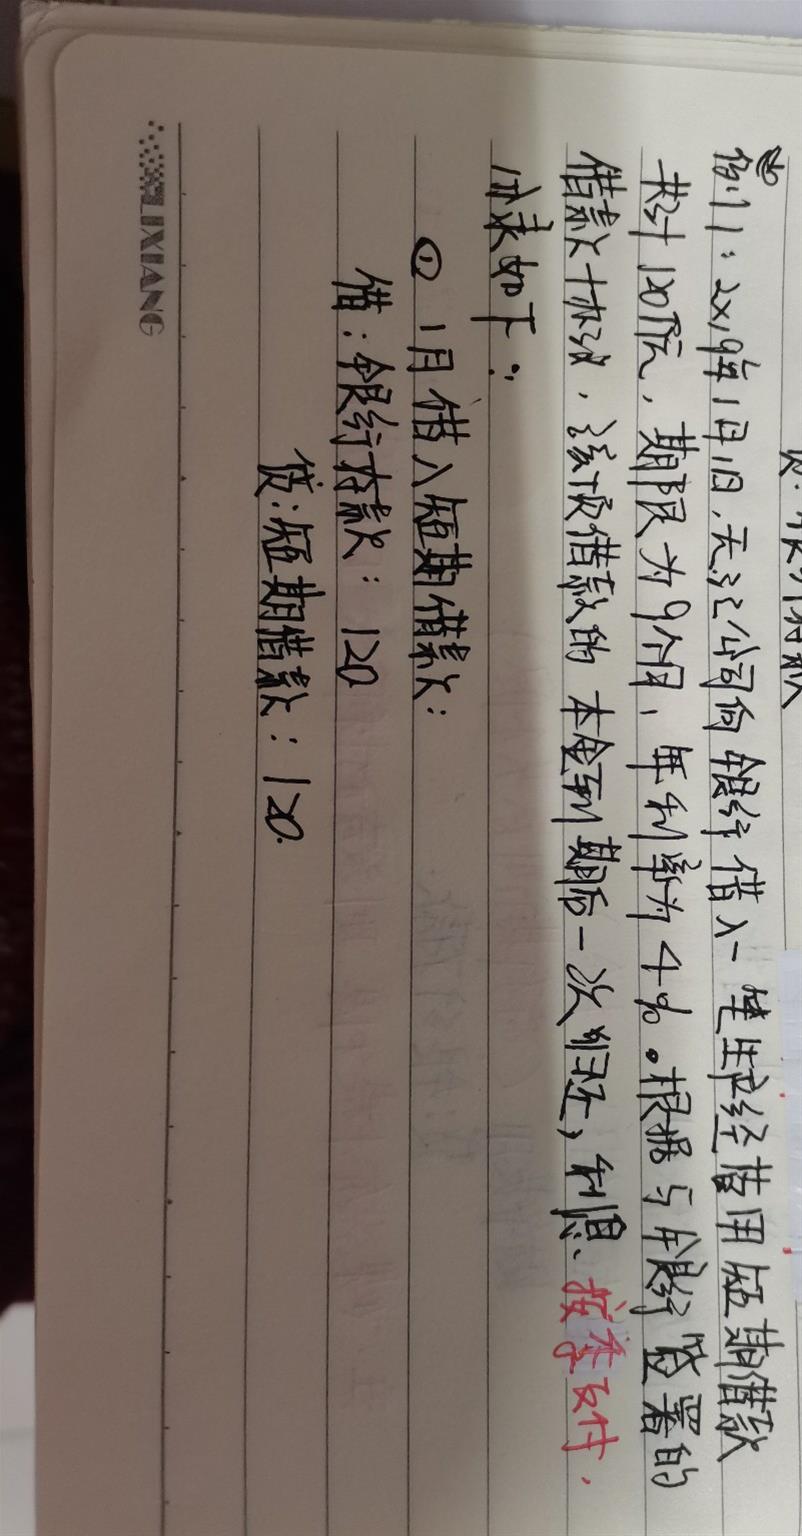 例1：2×19年1月1日，天沁公司向银行借入一笔生产经营用短期借款
共计120万元，期限为9个月，年利率为4%。根据与银行签署的
借款协议，该项借款的本金到期后一次归还，利息、按季支付，
分录如下：
① 1月借入短期借款：
借：银行存款：120
贷：短期借款：120.
LIXIANG